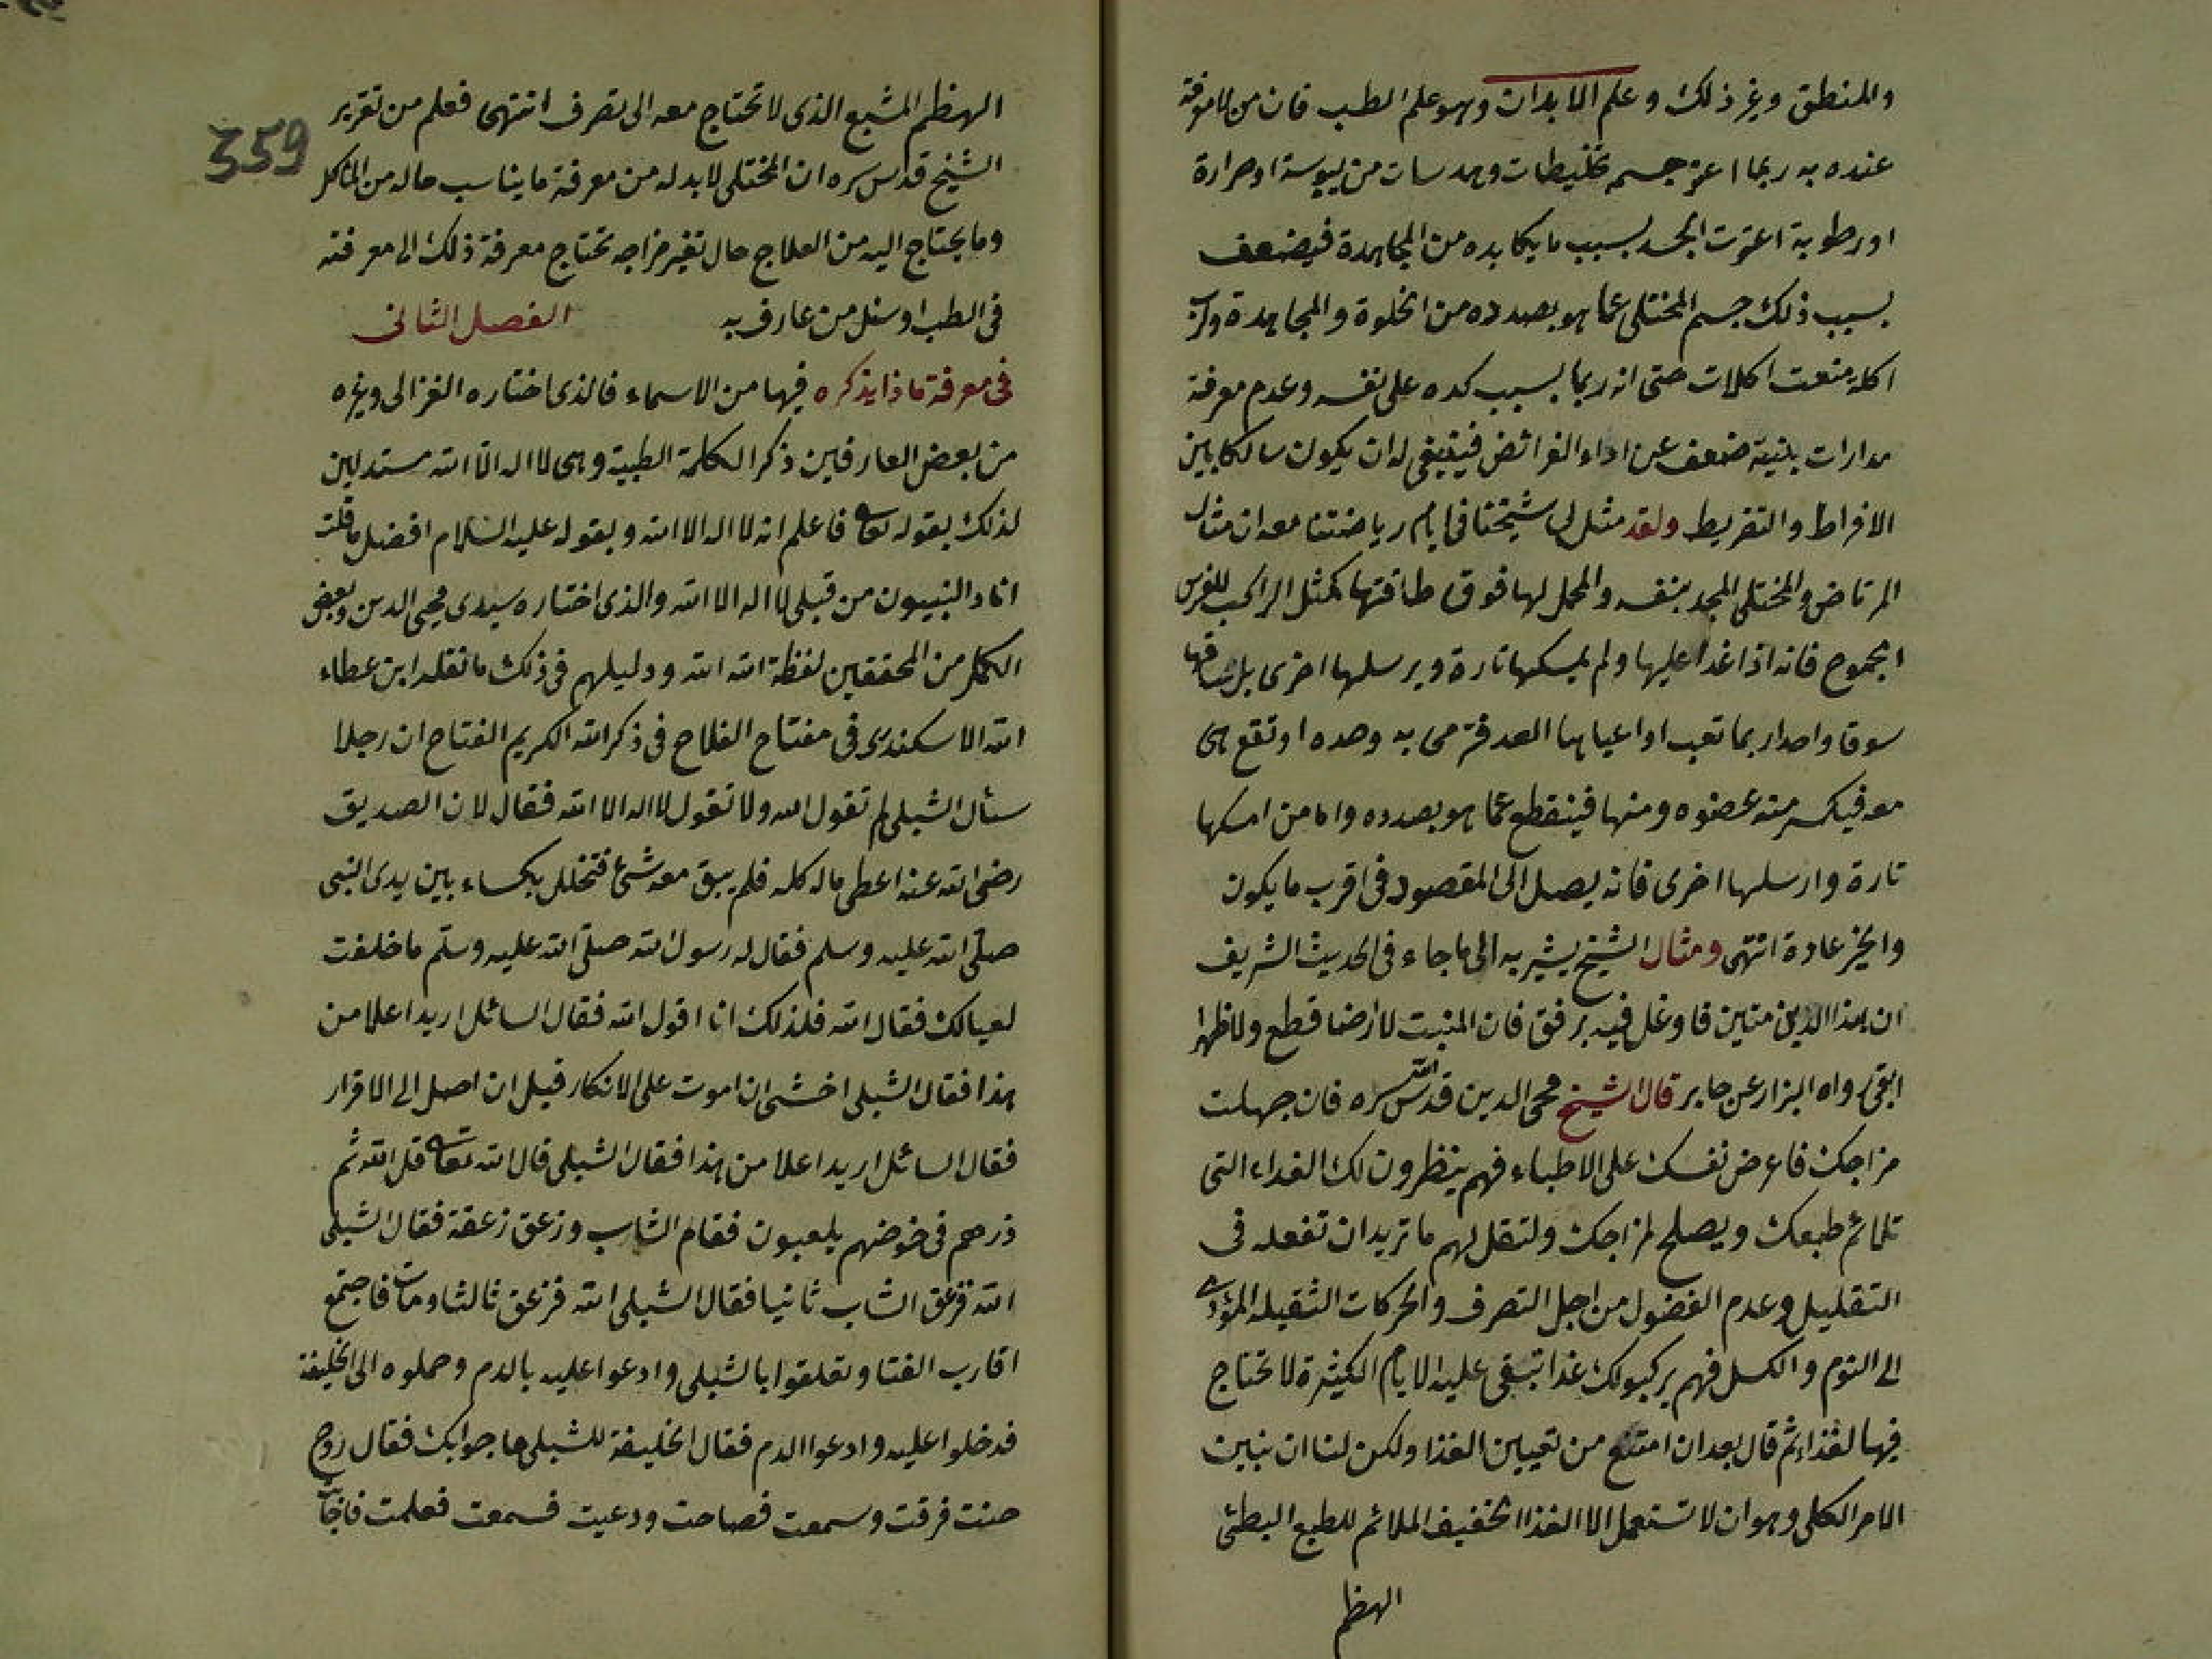 والمنطق وغير ذلك وعلم الابدان وهو علم الطب فان من لا معرفة
عنده به ربما اعتر جسم تخليطات وهدسات من يبوسة او حرارة
او رطوبة اعترت الجسد بسبب ما يكابده من المجاهدة فيضعف
بسبب ذلك جسم المختلى عما هو بصدده من الخلوة والمجاهدة ورب
اكلة منعت اكلات حتى انه ربما بسبب كده على نفسه وعدم معرفة
مدارات بنيته ضعف عن اداء الفرائض فينبغى له ان يكون سالكا بين
الافراط والتفريط ولقد مثل لى شيخنا فى ايام رياضتنا معه ان مثال
المرتاض والمختلى المجد بنفسه والمحمل لها فوق طاقتها كمثل الراكب للفرس
الجموح فانه اذا غدا عليها ولم يمسكها تارة ويرسلها اخرى بل ساقها
سوقا واحدا ربما تعب او اعياها العد فترمى به وحده او تقع هى
معه فيكسر منه عضوه ومنها فينقطع عما هو بصدده واما من امسكها
تارة وارسلها اخرى فانه يصل الى المقصود فى اقرب ما يكون
والخير عادة انتهى ومثال الشيخ يشير به الى ما جاء فى الحديث الشريف
ان هذا الدين متين فاوغل فيه برفق فان المنبت لا ارضا قطع ولا ظهرا
ابقى رواه البزار عن جابر قال الشيخ محى الدين قدس الله سره فان جهلت
مزاجك فاعرض نفسك على الاطباء فهم ينظرون لك الغداء التى
تلائم طبعك ويصلح لمزاجك ولتقل لهم ما تريد ان تفعله فى
التقليل وعدم الفضول من اجل التصرف والحركات الثقيله المؤدى
الى النوم والكسل فهم يركبو لك غدا تبقى عليه الايام الكثيرة لا تحتاج
فيها لغذاء ثم قال بعد ان امتنع من تعيين الغذا ولكن لنا ان نبين
الامر الكلى وهو ان لا تستعمل الا الغذا الخفيف الملائم للطبع البطئى
الهظم
359
الهظم المشبع الذى لا تحتاج معه الى تصرف انتهى فعلم من تقرير
الشيخ قدس سره ان المختلى لابد له من معرفة ما يناسب حاله من المأكل
وما يحتاج اليه من العلاج حال تغير مزاجه تحتاج معرفة ذلك الى معرفته
فى الطب او سئل من عارف به الفصل الثانى
فى معرفة ماذا يذكره فيها من الاسماء فالذى اختاره الغزالى وغيره
من بعض العارفين ذكر الكلمة الطيبة وهى لا اله الا الله مستدلين
لذلك بقوله تعالى فاعلم انه لا اله الا الله وبقوله عليه السلام افضل ما قلت
انا والنبيون من قبلى لا اله الا الله والذى اختاره سيدى محيى الدين وبعض
الكمل من المحققين لفظة الله الله ودليلهم فى ذلك ما نقله ابن عطاء
الله الاسكندرى فى مفتاح الفلاح فى ذكر الله الكريم الفتاح ان رجلا
سئال الشبلى لم تقول الله ولا تقول لا اله الا الله فقال لان الصديق
رضى الله عنه اعطى ماله كله فلم يبق معه شئ فتخلل بكساء بين يدى النبى
صلى الله عليه وسلم فقال له رسول الله صلى الله عليه وسلم ما خلفت
لعيالك فقال الله فلذلك انا اقول الله فقال السائل اريد اعلا من
هذا فقال الشبلى اخشى ان اموت على الانكار قبل ان اصل الى الاقرار
فقال السائل اريد اعلا من هذا فقال الشبلى قال الله تعالى قل الله ثم
ذرهم فى خوضهم يلعبون فقام الشاب وزعق زعقة فقال الشبلى
الله فزعق الشاب ثانيا فقال الشبلى الله فزعق ثالثا ومات فاجتمع
اقارب الفتا وتعلقوا بالشبلى وادعوا عليه بالدم وحملوه الى الخليفة
فدخلوا عليه وادعوا الدم فقال الخليفة للشبلى ما جوابك فقال روح
حنت فرقت وسمعت فصاحت ودعيت فسمعت فعلمت فاجابت